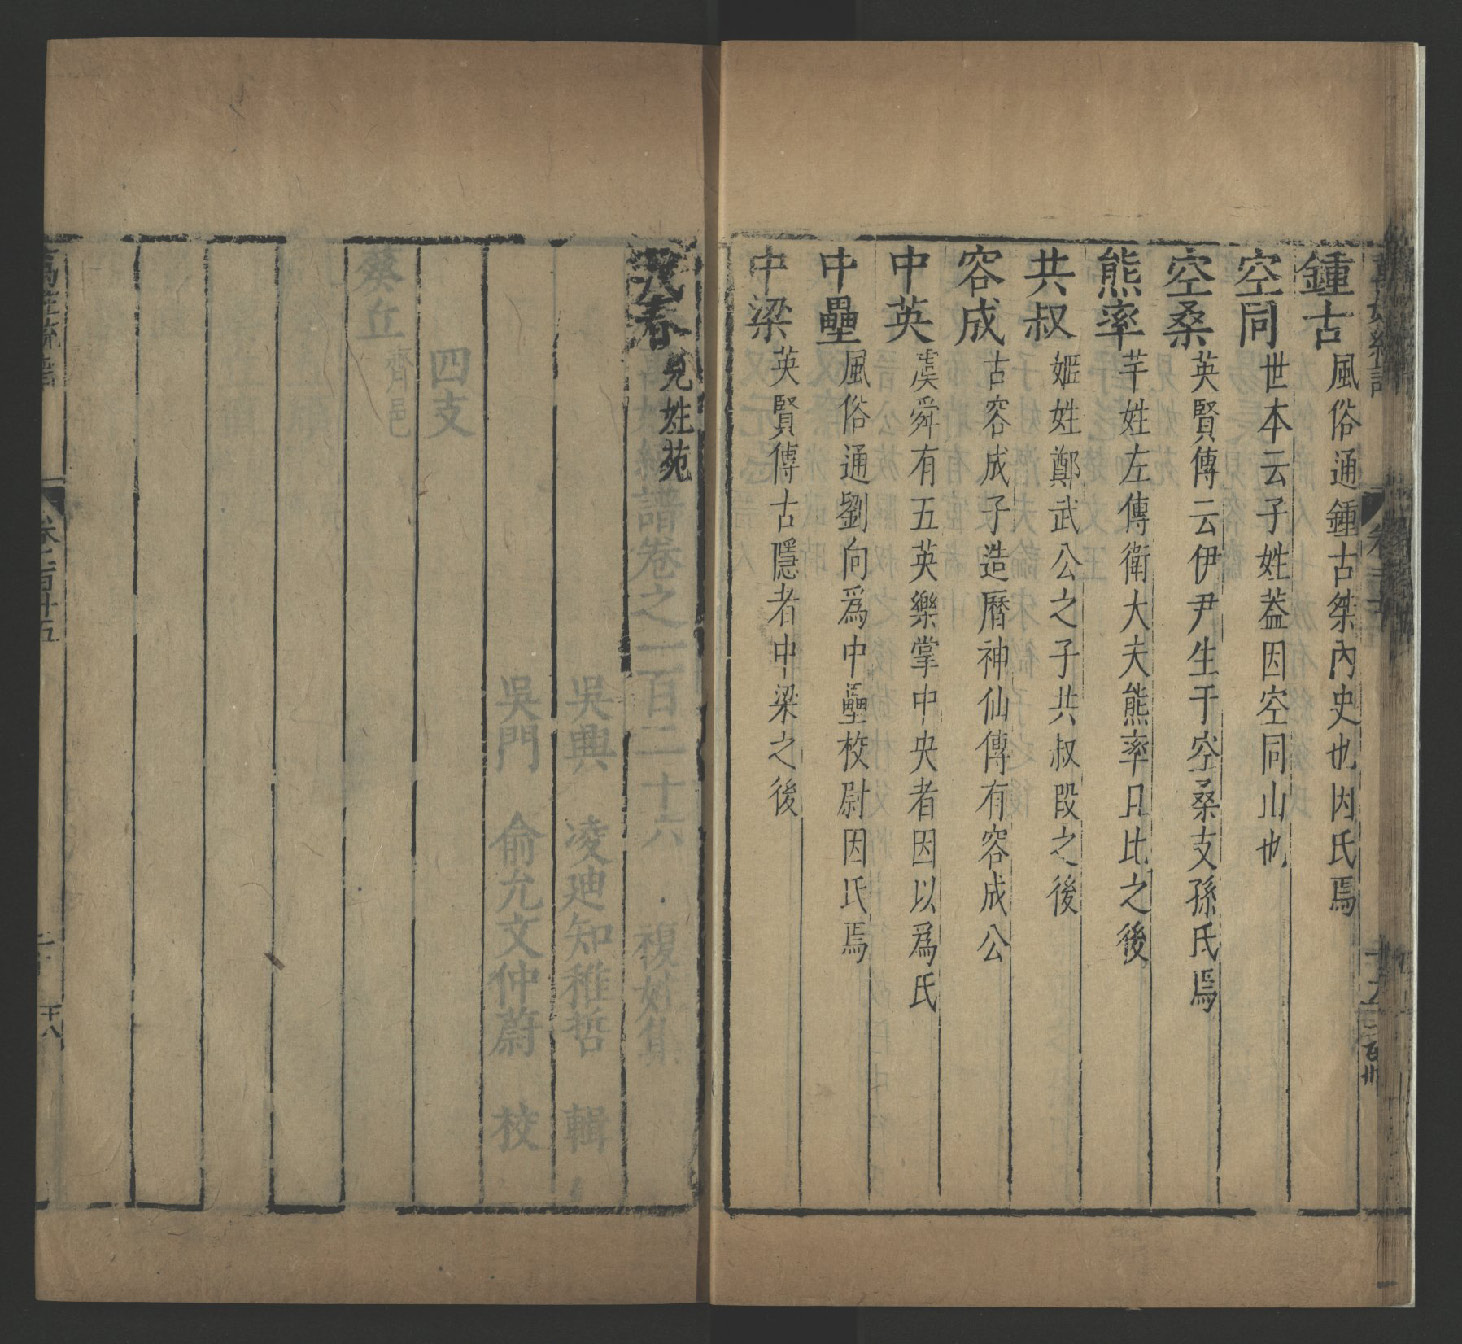 鍾古風俗通鍾古桀內史也因氏焉
空同世本云子姓葢因空同山也
空桑英賢傳云伊尹生于空桑支孫氏焉
熊率芊姓左傳衛大夫熊率且比之後
共叔姬姓鄭武公之子共叔段之後
容成古容成子造曆神仙傳有容成公
中英虞舜有五英樂掌中央者因以爲氏
中壘風俗通劉向爲中壘校尉因氏焉
中梁英賢傳古隱者中梁之後
春見姓苑
萬姓統譜卷之一百二十六 複姓集
吳興 凌迪知稚哲 輯
吳門 俞允文仲蔚 校
四支
葵丘齊邑